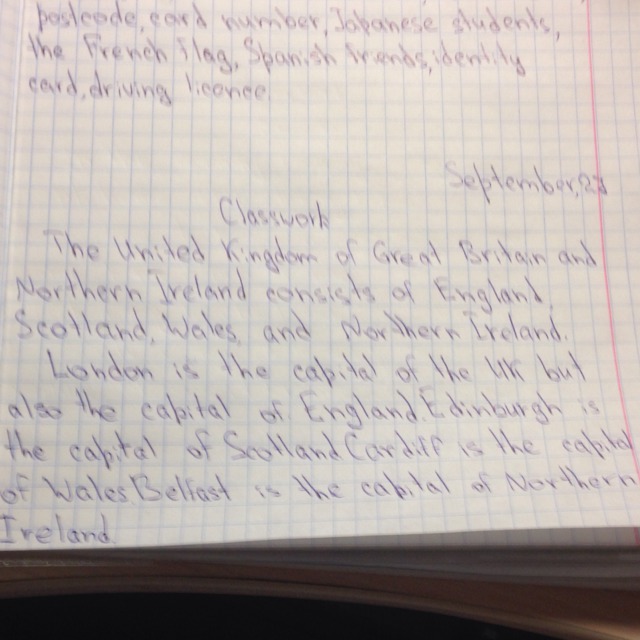 postcode, card number, Japanese students,
the French flag, Spanish friends, identity
card, driving licence
September, 23
Classwork
The United Kingdom of Great Britain and
Northern Ireland consists of England,
Scotland, Wales, and Northern Ireland.
London is the capital of the UK but
also the capital of England. Edinburgh is
the capital of Scotland. Cardiff is the capital
of Wales. Belfast is the capital of Northern
Ireland.